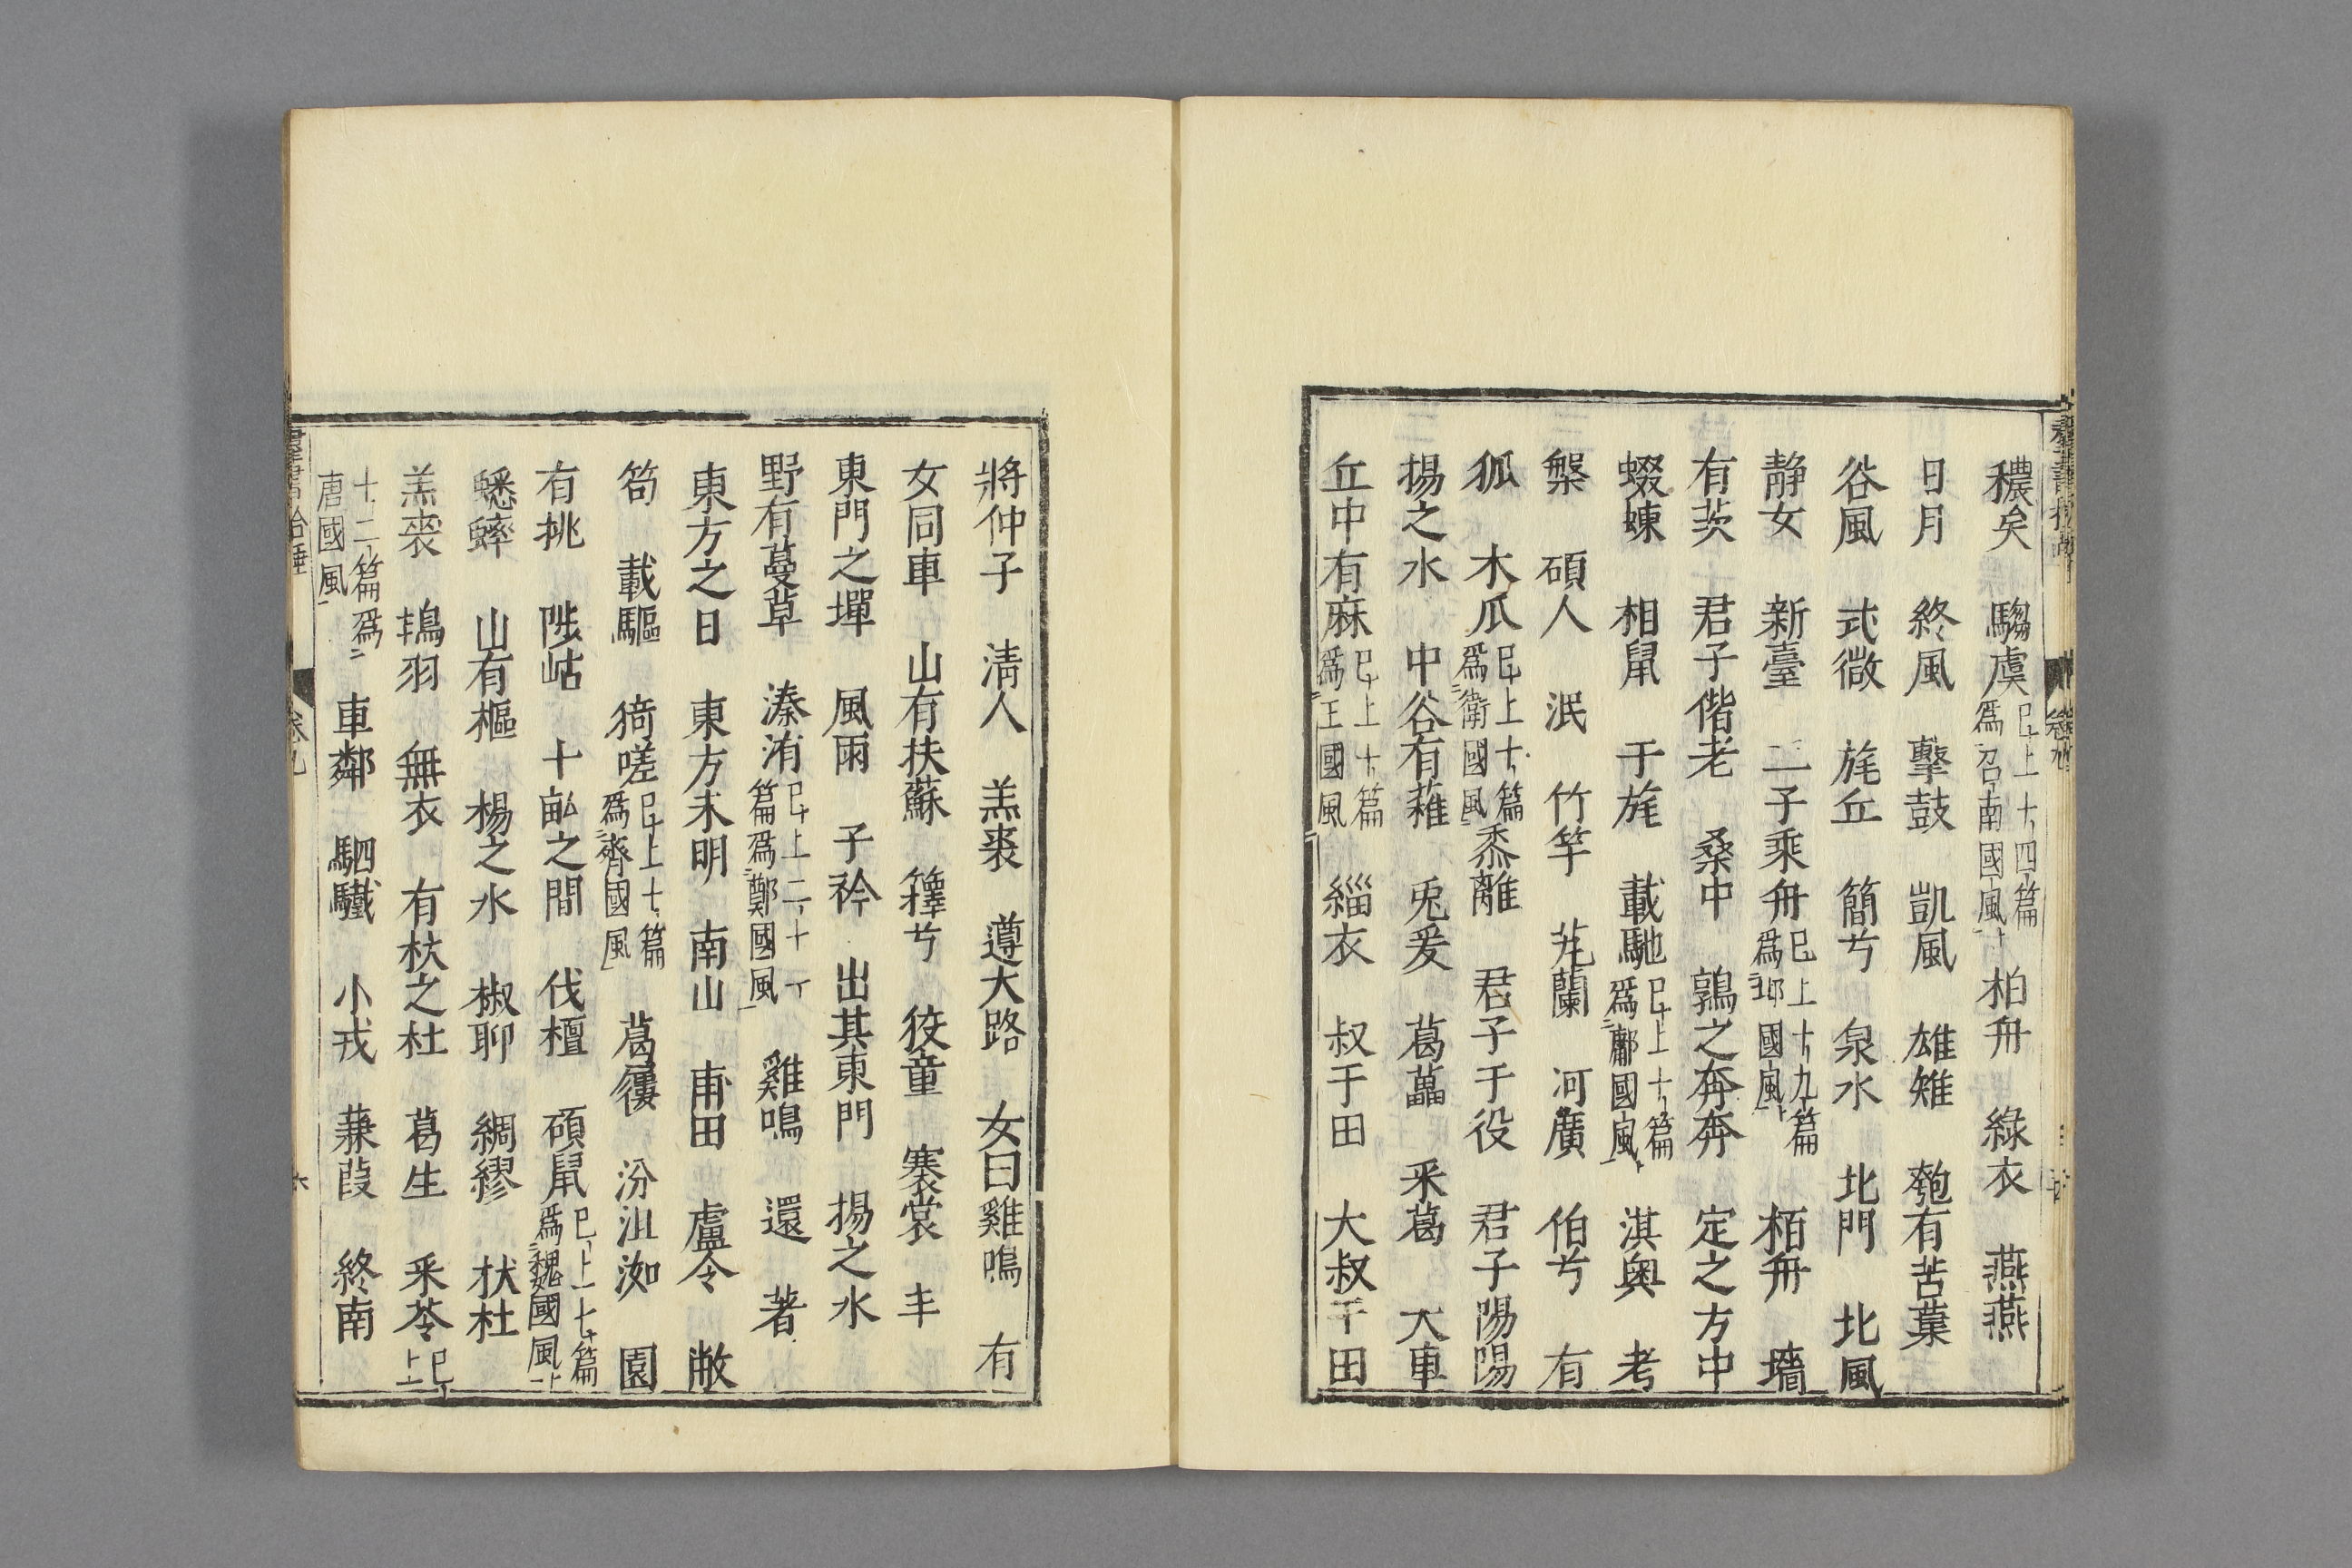 穠矣 騶虞 已上十四篇爲召南國風 柏舟 綠衣 燕燕
日月 終風 擊鼓 凱風 雄雉 匏有苦葉
谷風 式微 旄丘 簡兮 泉水 北門 北風
静女 新臺 二子乘舟 已上十九篇爲邶國風 栢舟 墻
有茨 君子偕老 桑中 鶉之奔奔 定之方中
蝃蝀 相鼠 干旄 載馳 已上十篇爲鄘國風 淇奥 考
槃 碩人 氓 竹竿 芄蘭 河廣 伯兮 有
狐 木瓜 已上十篇爲衛國風 黍離 君子于役 君子陽陽
揚之水 中谷有蓷 兎爰 葛藟 采葛 大車
丘中有麻 已上十篇爲王國風 緇衣 叔于田 大叔于田
將仲子 清人 羔裘 遵大路 女曰雞鳴 有
女同車 山有扶蘇 籜兮 狡童 褰裳 丰
東門之墠 風雨 子衿 出其東門 揚之水
野有蔓草 溱洧 已上二十一篇爲鄭國風 雞鳴 還 著
東方之日 東方未明 南山 甫田 盧令 敝
笱 載驅 猗嗟 已上十一篇爲齊國風 葛屨 汾沮洳 園
有挑 陟岵 十畝之間 伐檀 碩鼠 已上七篇爲魏國風
蟋蟀 山有樞 楊之水 椒聊 綢繆 杕杜
羔裘 鴇羽 無衣 有杕之杜 葛生 采苓 已上
十二篇爲唐國風 車鄰 駟驖 小戎 蒹葭 終南
卷九
六